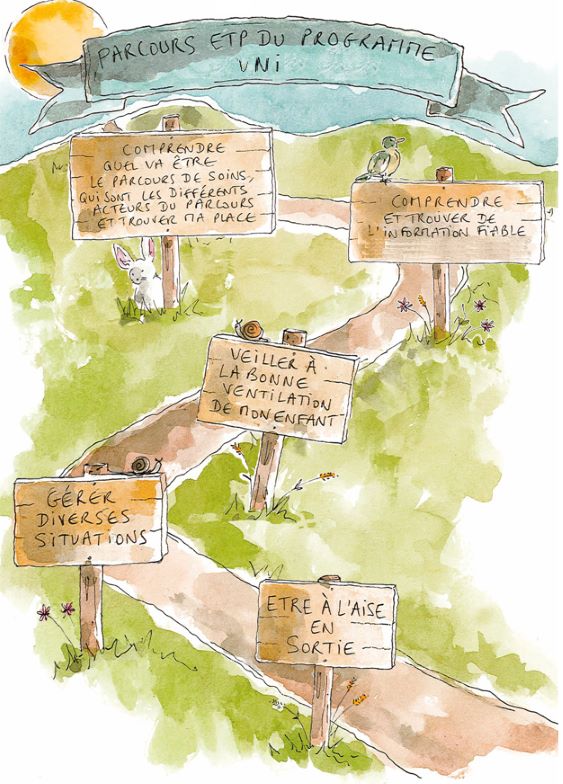 PARCOURS ETP DU PROGRAMME
VNi
COMPRENDRE
QUEL VA ÊTRE
LE PARCOURS DE SOINS,
QUI SONT LES DIFFÉRENTS
ACTEURS DU PARCOURS
ET TROUVER MA PLACE
COMPRENDRE
ET TROUVER DE
L'INFORMATION FIABLE
VEILLER À
LA BONNE
VENTILATION
DE MON ENFANT
GÉRÉR
DIVERSES
SITUATIONS
ETRE À L'AISE
EN
SORTIE